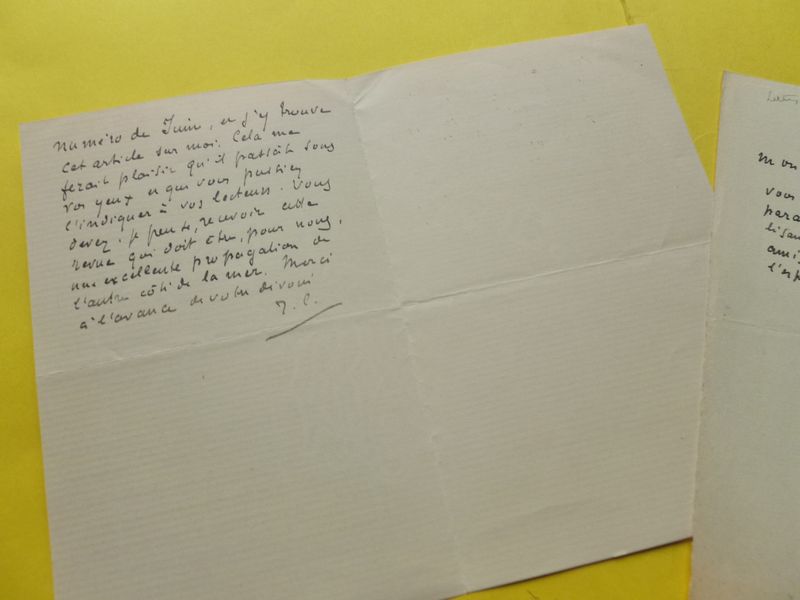 numéro de Juin, et j'y trouve
cet article sur moi. Cela me
ferait plaisir qu'il passât sous
vos yeux et que vous puissiez
l'indiquer à vos lecteurs. Vous
devez. je pense, recevoir cette
revue qui doit être, pour nous,
une excellente propagation de
l'autre côté de la mer. Merci
à l'avance de votre dévoué
J. C.
mon
vous
para
lisan
ami
l'esp